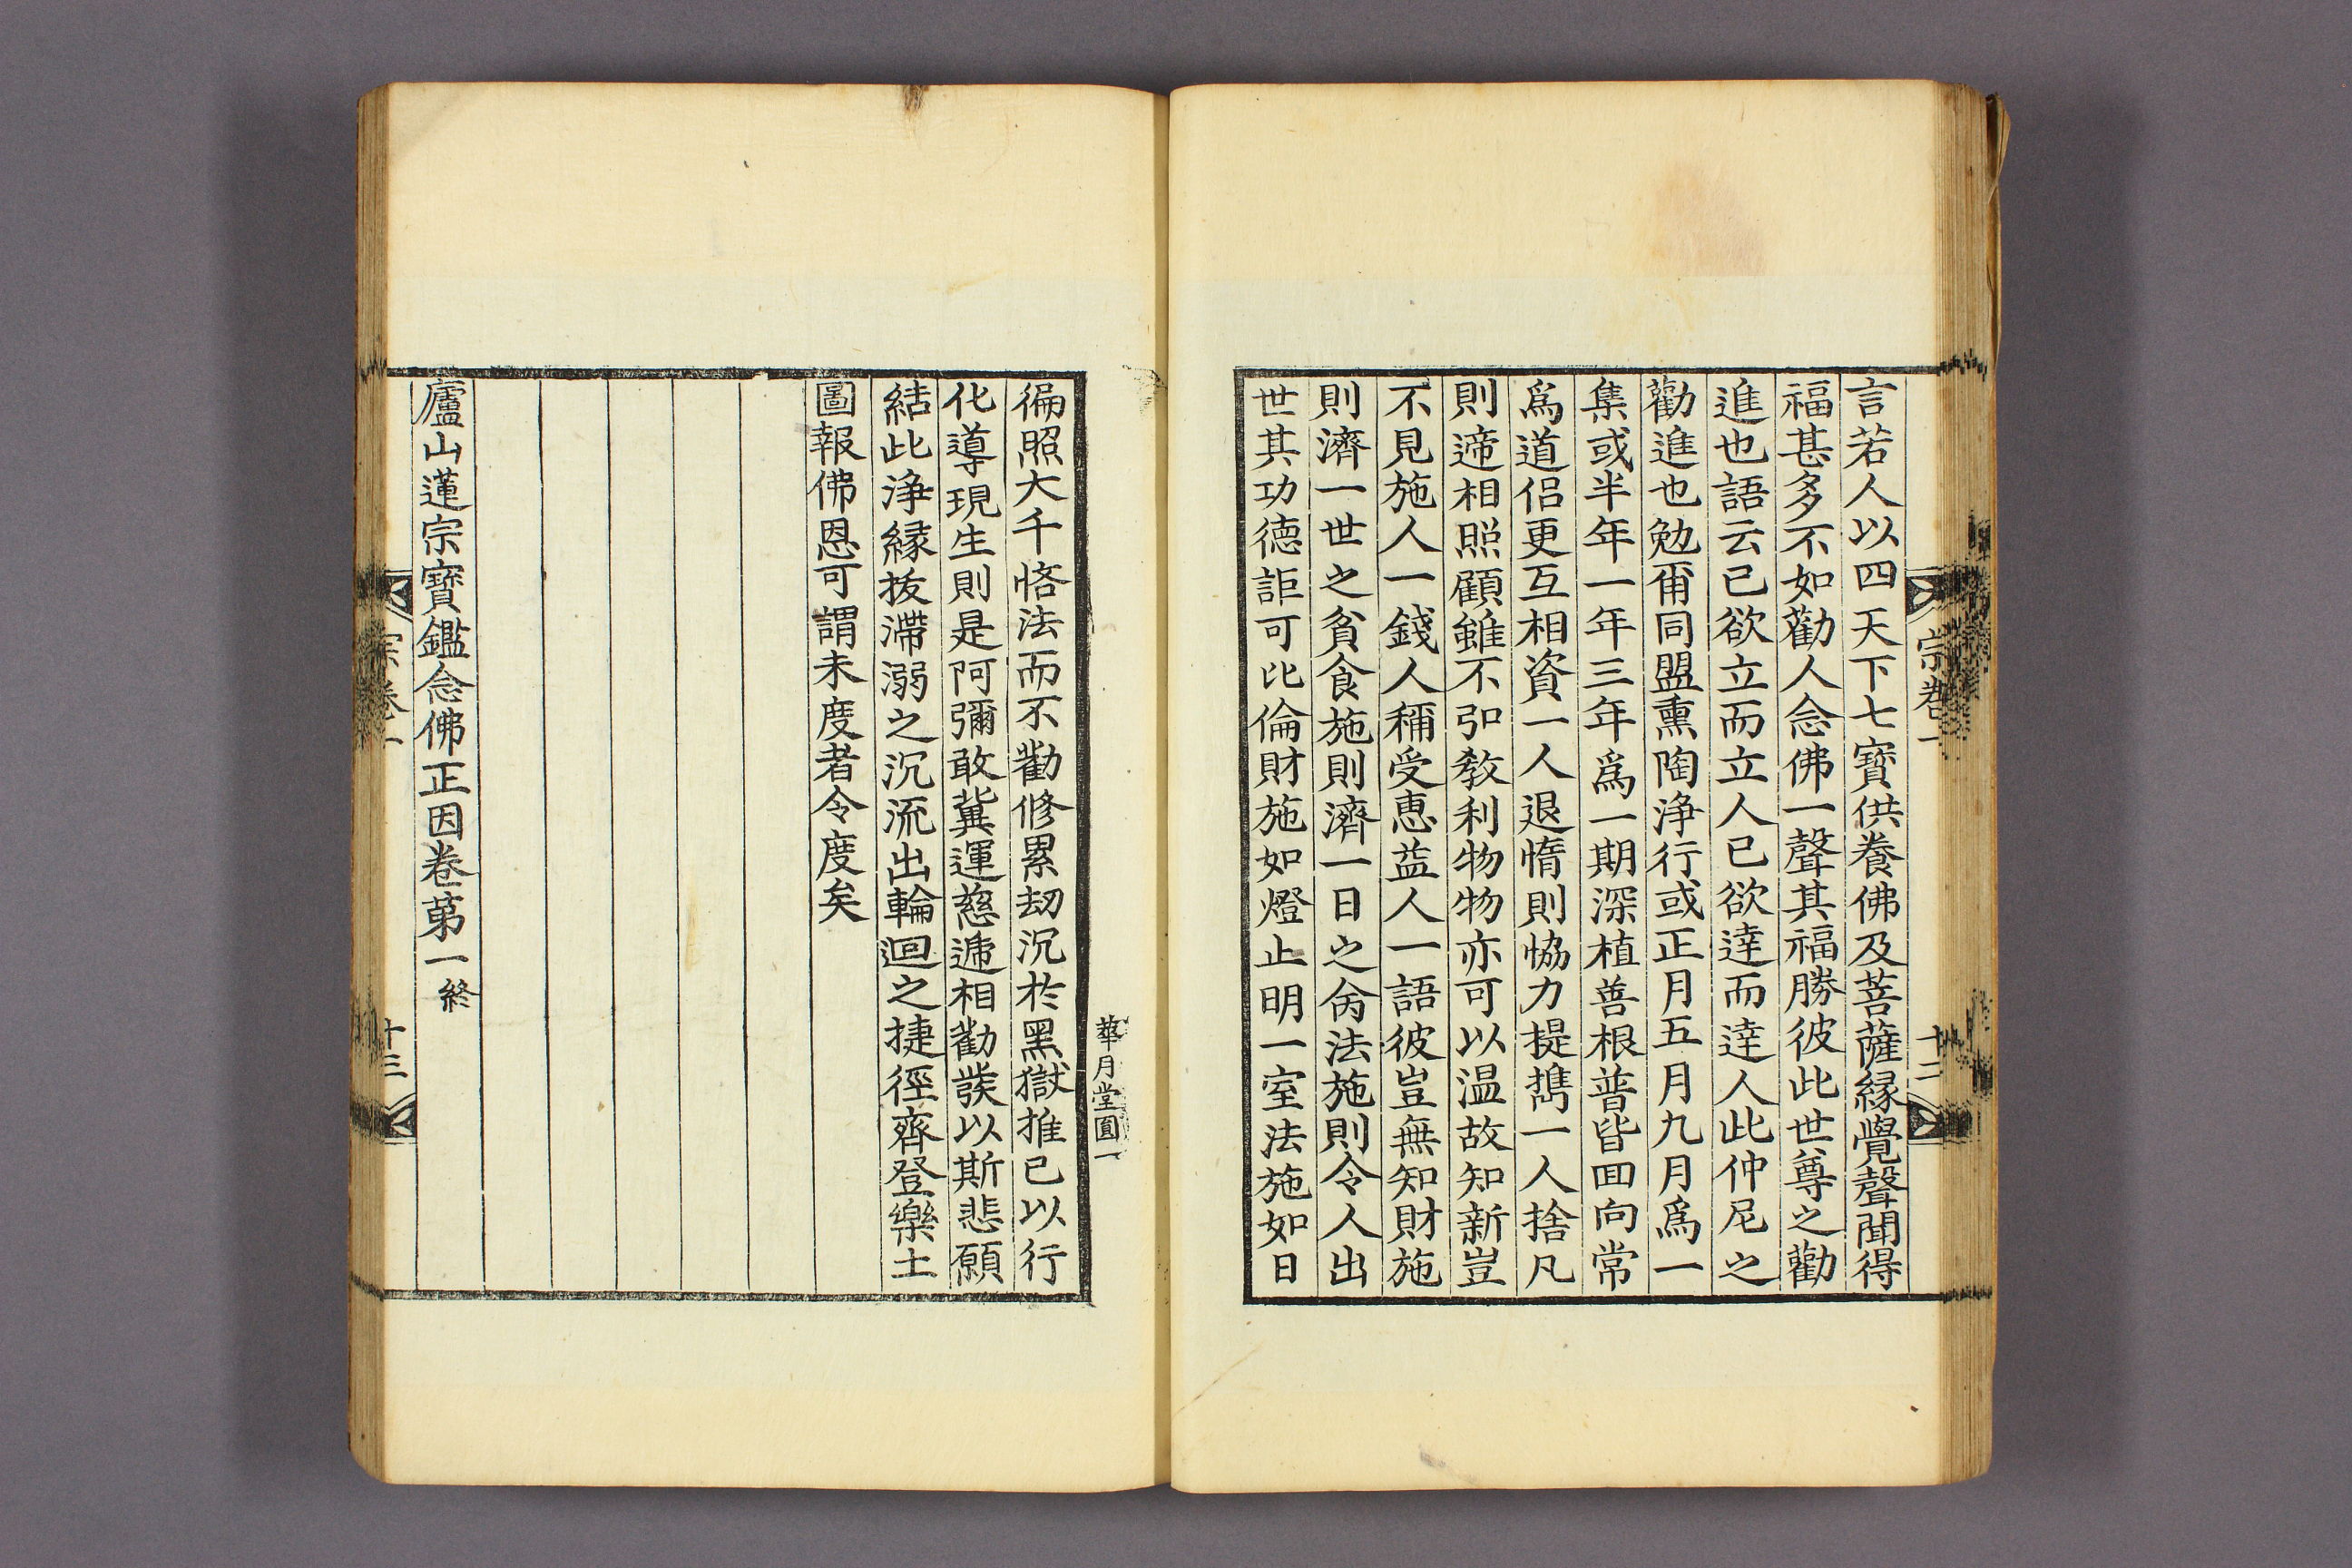 言若人以四天下七寶供養佛及菩薩縁覺聲聞得
福甚多不如勸人念佛一聲其福勝彼此世尊之勸
進也語云已欲立而立人已欲達而達人此仲尼之
勸進也勉爾同盟熏陶浄行或正月五月九月爲一
集或半年一年三年爲一期深植善根普皆回向常
爲道侣更互相資一人退惰則恊力提擕一人捨凡
則遞相照顧雖不引教利物物亦可以温故知新豈
不見施人一錢人稱受惠益人一語彼豈無知財施
則濟一世之貧食施則濟一日之命法施則令人出
世其功德詎可比倫財施如燈止明一室法施如日
宗卷一
十二
徧照大千悋法而不勸修累劫沉於黑獄推己以行
化導現生則是阿彌敢冀運慈遞相勸發以斯悲願
結此浄縁拔滯溺之沉流出輪迴之捷徑齊登樂土
圖報佛恩可謂未度者令度矣
廬山蓮宗寶鑑念佛正因卷第一終
華月堂圓一
宗卷一
十三